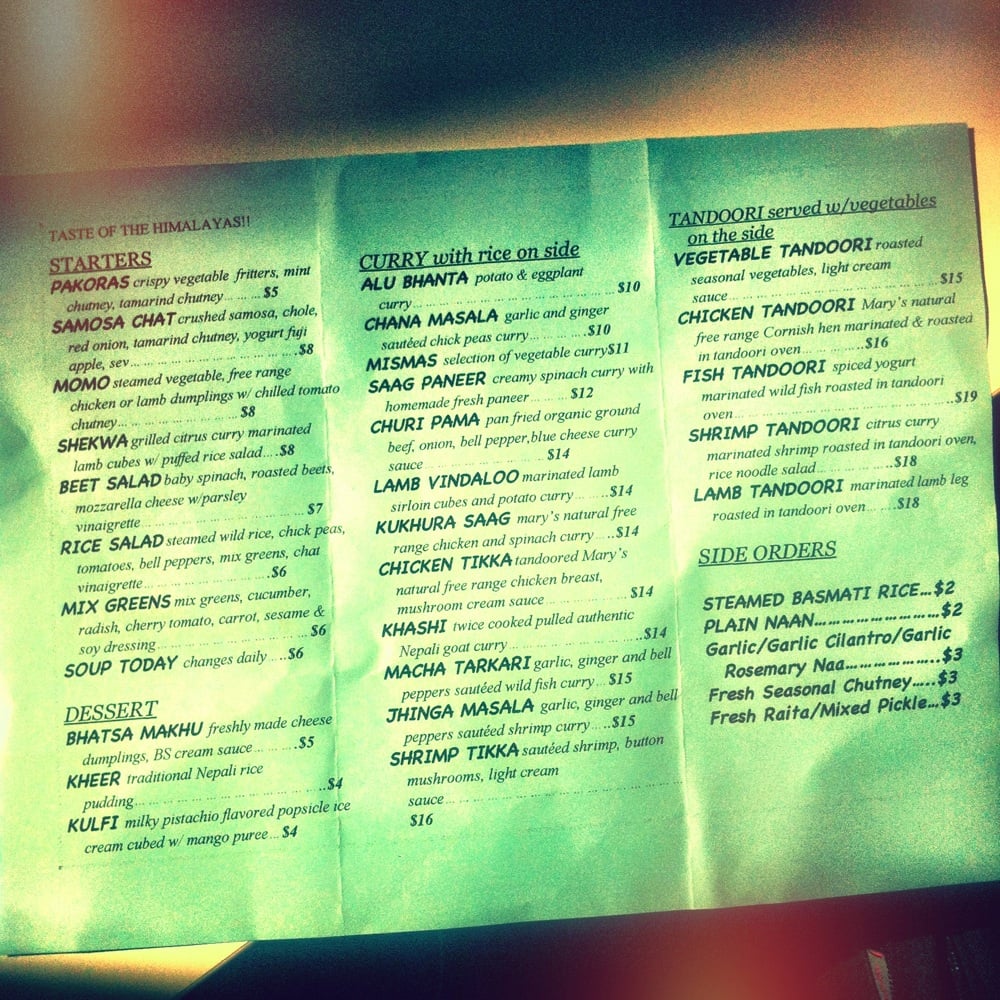 TASTE OF THE HIMALAYAS!!
STARTERS
PAKORAS crispy vegetable fritters, mint
chutney, tamarind chutney... ... ...$5
SAMOSA CHAT crushed samosa, chole,
red onion, tamarind chutney, yogurt fuji
apple, sev... ... ... ... ... ... ... ...$8
MOMO steamed vegetable, free range
chicken or lamb dumplings w/ chilled tomato
chutney... ... ... ... ... ... ...$8
SHEKWA grilled citrus curry marinated
lamb cubes w/ puffed rice salad....$8
BEET SALAD baby spinach, roasted beets,
mozzarella cheese w/parsley
vinaigrette... ... ... ... ... ... ... ... $7
RICE SALAD steamed wild rice, chick peas,
tomatoes, bell peppers, mix greens, chat
vinaigrette... ... ... ... ... ... .$6
MIX GREENS mix greens, cucumber,
radish, cherry tomato, carrot, sesame &
soy dressing... ... ... ... ... ... ... $6
SOUP TODAY changes daily ... ..$6
DESSERT
BHATSA MAKHU freshly made cheese
dumplings, BS cream sauce... ... ...$5
KHEER traditional Nepali rice
pudding... ... ... ... ... ... ... ... ...$4
KULFI milky pistachio flavored popsicle ice
cream cubed w/ mango puree... $4
CURRY with rice on side
ALU BHANTA potato & eggplant
curry... ... ... ... ... ... ... ... ... ... $10
CHANA MASALA garlic and ginger
sautéed chick peas curry... ... ... ...$10
MISMAS selection of vegetable curry$11
SAAG PANEER creamy spinach curry with
homemade fresh paneer... ... ... $12
CHURI PAMA pan fried organic ground
beef, onion, bell pepper,blue cheese curry
sauce ... ... ... ... ... ... $14
LAMB VINDALOO marinated lamb
sirloin cubes and potato curry... ...$14
KUKHURA SAAG mary's natural free
range chicken and spinach curry... ..$14
CHICKEN TIKKA tandoored Mary's
natural free range chicken breast,
mushroom cream sauce ... ... ... ... $14
KHASHI twice cooked pulled authentic
Nepali goat curry... ... ... ... ... ..$14
MACHA TARKARI garlic, ginger and bell
peppers sautéed wild fish curry... ...$15
JHINGA MASALA garlic, ginger and bell
peppers sautéed shrimp curry... ...$15
SHRIMP TIKKA sautéed shrimp, button
mushrooms, light cream
sauce... ... ... ... ... ... ... ... ... ...
$16
TANDOORI served w/vegetables
on the side
VEGETABLE TANDOORI roasted
seasonal vegetables, light cream
sauce... ... ... ... ... ... ... ... ... $15
CHICKEN TANDOORI Mary's natural
free range Cornish hen marinated & roasted
in tandoori oven... ... ... ...$16
FISH TANDOORI spiced yogurt
marinated wild fish roasted in tandoori
oven... ... ... ... ... ... ... ... ... ..$19
SHRIMP TANDOORI citrus curry
marinated shrimp roasted in tandoori oven,
rice noodle salad... ... ... ...$18
LAMB TANDOORI marinated lamb leg
roasted in tandoori oven... ...$18
SIDE ORDERS
STEAMED BASMATI RICE...$2
PLAIN NAAN... ... ... ... ... ...$2
Garlic/Garlic Cilantro/Garlic
Rosemary Naa... ... ... ... ..$3
Fresh Seasonal Chutney.....$3
Fresh Raita/Mixed Pickle...$3